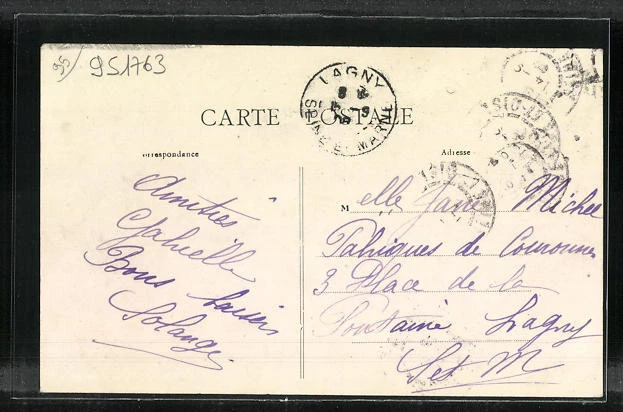 95
951763
LAGNY
SEINE ET MARNE
CARTE POSTALE
orrespondance
Adresse
Amitiés
Gabrielle
Bons baisers
Solange
M elle Jane Michel
Fabriques de Couronnes
3 Place de la
Fontaine Lagny
S et M